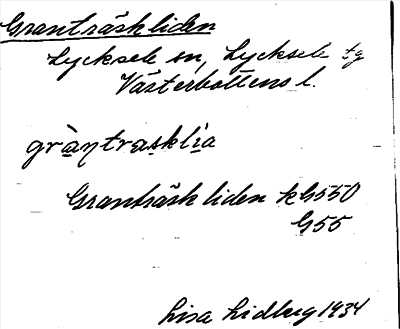 Granträskliden
Lycksele sn, Lycksele tg
Västerbottens l.
gràntraskli̇a
Granträskliden kG550
G55
Lisa Lidberg 1934